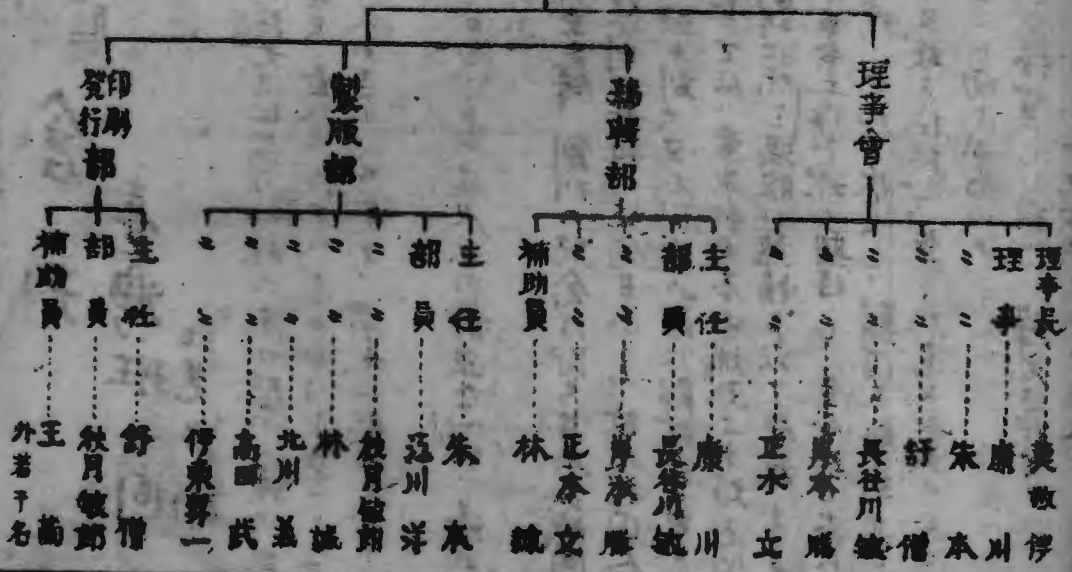 理事會
理事長 敏
理事 康川
〃〃 朱本
〃〃 舒僧
〃〃 長谷川敏
〃〃 岸本勝
〃〃 正木立
編輯部
主任 康川
部員 長谷川敏
〃〃 岸本勝
〃〃 正木文
補助員 林
製版部
主任 朱本
部員 川洋
〃〃 秋月敏郎
〃〃 林誠
〃〃 北川義
〃〃 高 武
〃〃 伊東昇一
印刷發行部
主任 舒僧
部員 秋月敏郎
補助員 王蘭
外若干名